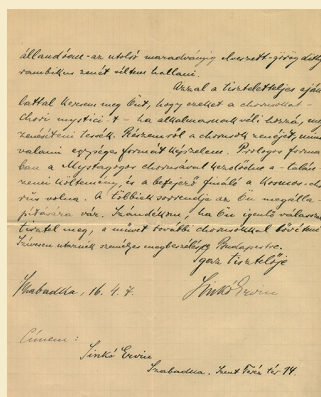 állandóan az utolsó maradványig elveszett görög dithy-
rambikus zenét véltem hallani.
Azzal a tiszteletteljes aján-
lattal keresem meg Önt, hogy ezeket a chorusokat -
Chori mystici-t - ha alkalmasnak véli hozzá, meg-
zenésíteni tessék. Részemről a chorusok zenéjét, mint
valami egységes formát képzelem. Prologos formá-
ban a Mystagogos chorusával kezdődne a
zenei költemény, és a befejező finálé a Kosmos-cho-
rus volna. A többiek sorrendje az Ön megálla-
pítására vár. Szándékom, ha Ön igenlő válasszal
tisztel meg, a művet további chorusokkal bővíteni.
Szívesen utaznék személyes megbeszélésre Budapestre.
Igaz tisztelője
Szabadka, 16. 4. 7. Sinkó Ervin
Címem:
Sinkó Ervin
Szabadka. Szent Teréz tér 14.